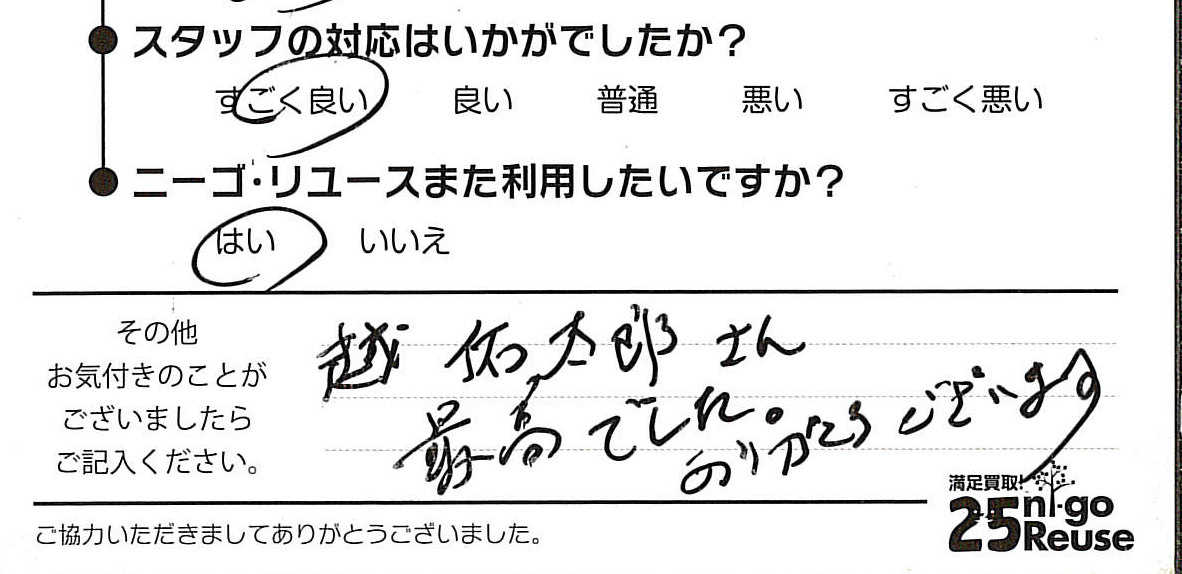 スタッフの対応はいかがでしたか?
すごく良い 良い 普通 悪い すごく悪い
ニーゴ・リユースまた利用したいですか?
はい いいえ
その他
お気付きのことが
ございましたら
ご記入ください。
越 佑太郎 さん
最高でした。
ありがとうございます
満足買取!
25 ni-go
Reuse
ご協力いただきましてありがとうございました。